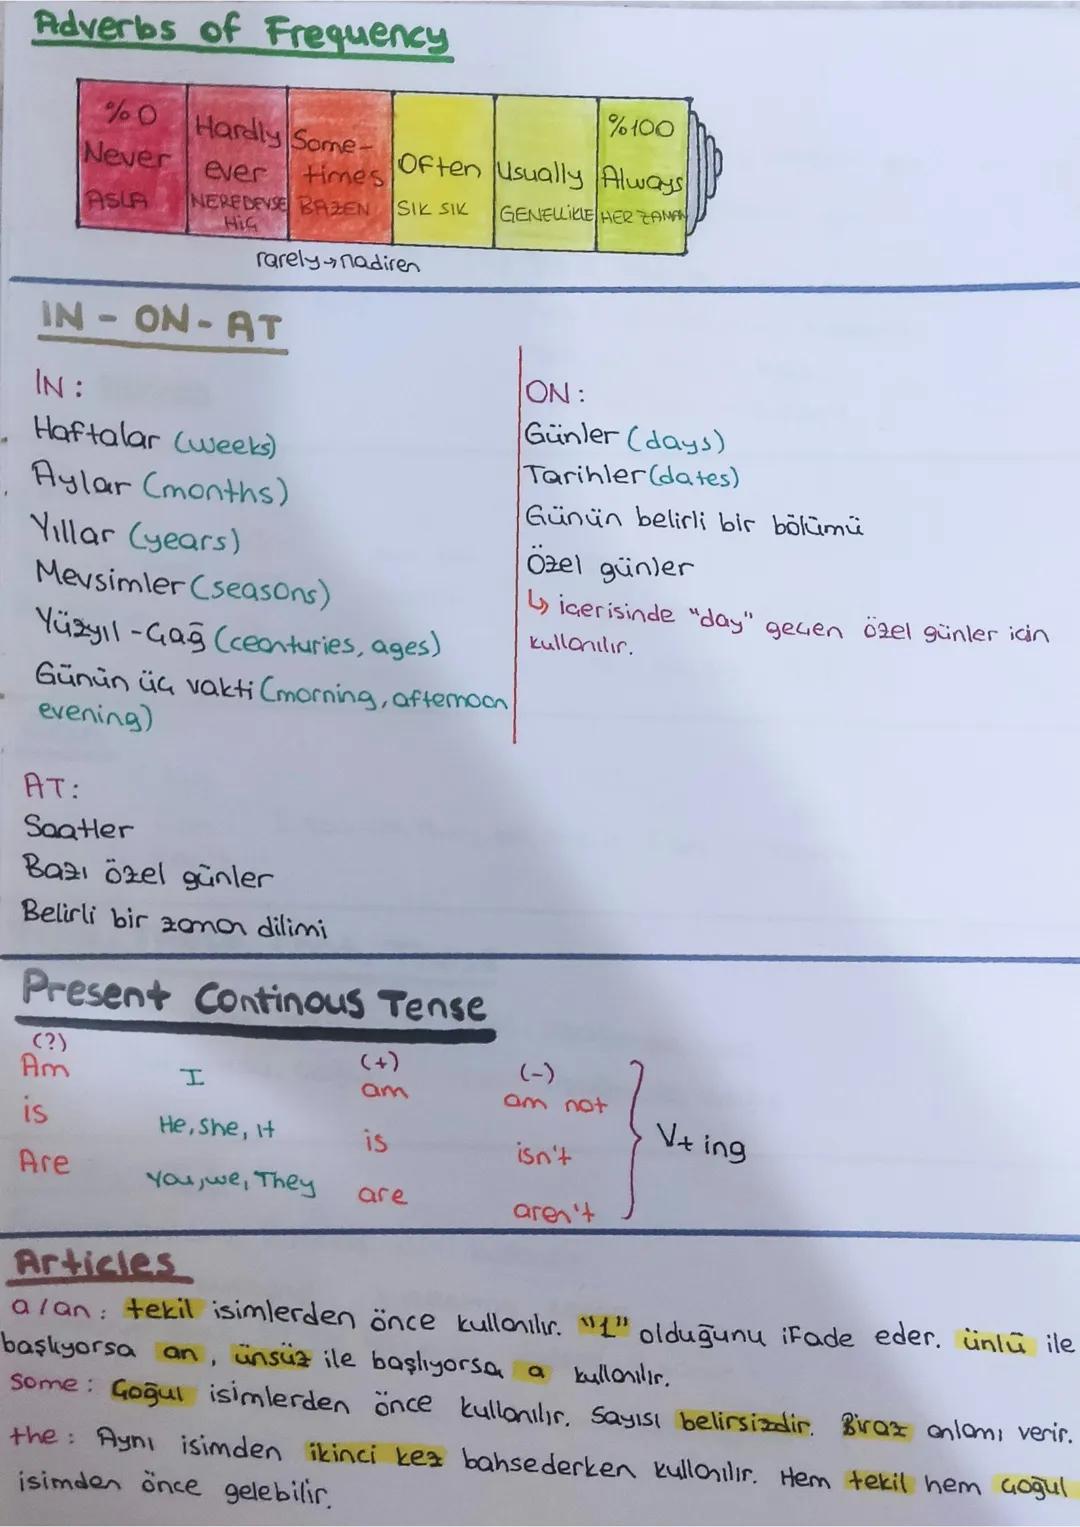 Adverbs of Frequency
%0 Never ASLA
Hardly ever NEREDEYSE HİÇ
Some-times BAZEN
Often SIK SIK
Usually GENELLİKLE
%100 Always HER ZAMAN
rarely→nadiren
IN - ON - AT
IN:
Haftalar (weeks)
Aylar (months)
Yıllar (years)
Mevsimler (seasons)
Yüzyıl - Çağ (ceanturies, ages)
Günün üç vakti (morning, afternoon
evening)
ON:
Günler (days)
Tarihler (dates)
Günün belirli bir bölümü
Özel günler
↳ içerisinde "day" geçen özel günler için
kullanılır.
AT:
Saatler
Bazı özel günler
Belirli bir zaman dilimi
Present Continous Tense
(?) (+) (-)
Am I am am not
is He, she, it is isn't
Are You, we, They are aren't
V+ing
Articles
a/an: tekil isimlerden önce kullanılır. "1" olduğunu ifade eder. ünlü ile
başlıyorsa an, ünsüz ile başlıyorsa a kullanılır.
some: Çoğul isimlerden önce kullanılır. Sayısı belirsizdir. Biraz anlamı verir.
the: Aynı isimden ikinci kez bahsederken kullanılır. Hem tekil hem çoğul
isimden önce gelebilir.